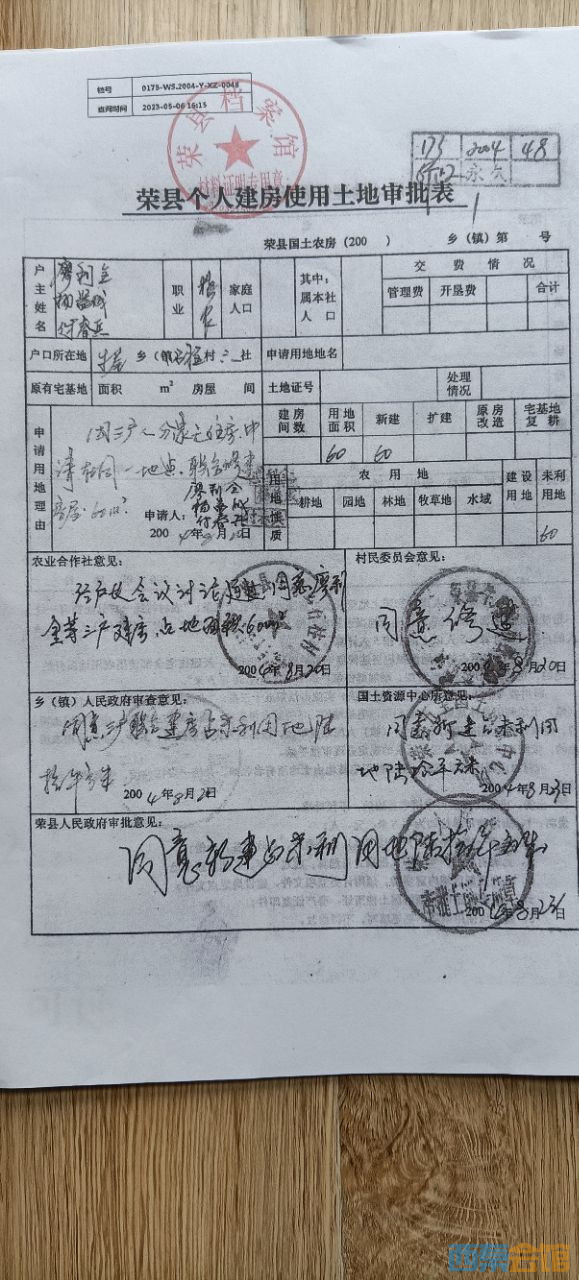 档号 0175-WS.2004-Y-XZ-0048
查阅时间 2023-05-06 16:15
荣县档案馆
材料证明专用章
175 2004 48
永久
荣县个人建房使用土地审批表
荣县国土农房(200 ) 乡(镇)第 号
户主姓名 廖利全
职业 务农 家庭人口 其中:属本社人口 交费情况
管理费 开垦费 合计
户口所在地 乡(镇) 村 社 申请用地地名
原有宅基地 面积 m² 房屋 间 土地证号 处理情况
申请用地理由
因三户人分家无住房,申
请在同一地点,联合修建
房屋.60m².
廖利全
申请人:
2004年8月20日
建房间数 用地面积 新建 扩建 原房改造 宅基地复耕
60 60
用地性质 农用地 建设用地 未利用地
耕地 园地 林地 牧草地 水域
60
农业合作社意见:
经户代会议讨论通过,同意廖利
全等三户建房,占地面积60m²
2004年8月20日
村民委员会意见:
同意修建.
2004年8月20日
乡(镇)人民政府审查意见:
同意三户联合建房占未利用地陆
拾平方米
2004年8月2 日
国土资源中心房意见:
同意新建占未利用
地陆拾平方米
2004年8月23日
荣县人民政府审批意见:
同意新建占未利用地陆拾平方米.
2004年8月23日